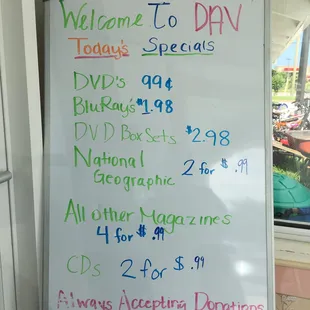 Welcome To DAV
Today's Specials
DVD's 99¢
BluRay's $1.98
DVD Box Sets $2.98
National
Geographic 2 for $.99
All other Magazines
4 for $.99
CDs 2 for $.99
Always Accepting Donations